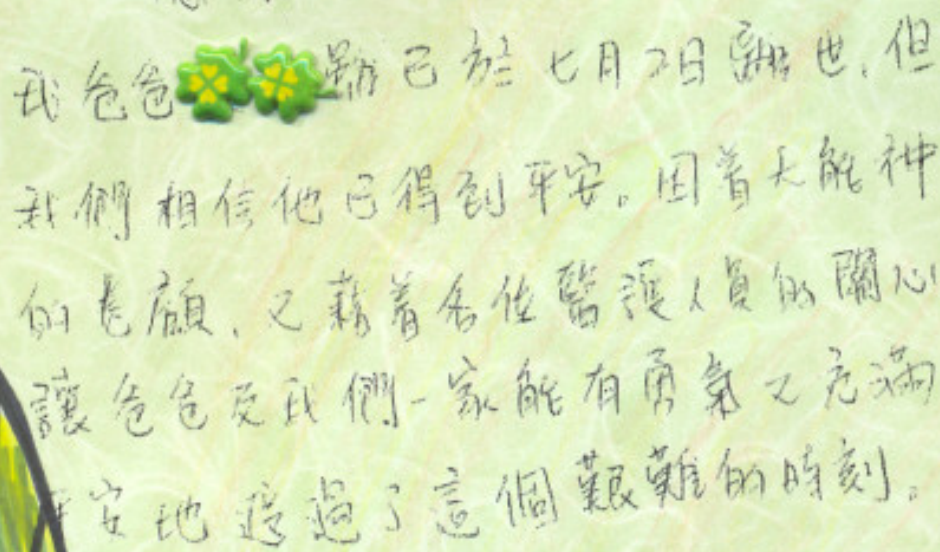 我爸爸 已於七月2日離世,但
我們相信他已得到平安。因着大能神
的眷顧,又藉着各位醫護人員的關心
讓爸爸及我們一家能有勇氣又充滿
平安地渡過了這個艱難的時刻。